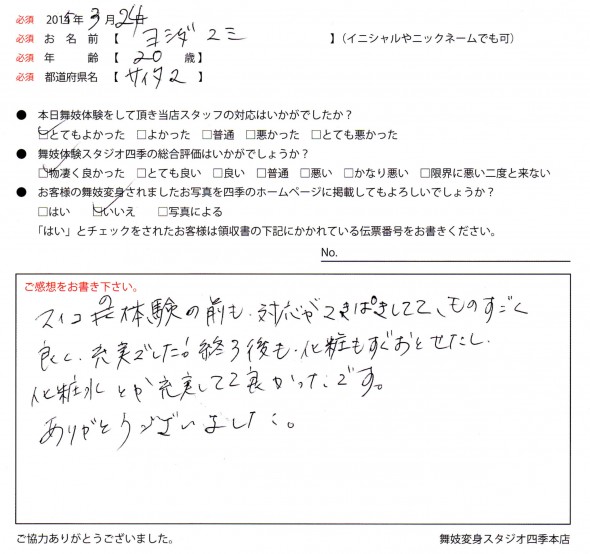 必須 2015年 3月 24日
必須 お 名 前 【 ヨシダ ユミ 】(イニシャルやニックネームでも可)
必須 年 齢 【 20 歳】
必須 都道府県名 【 サイタマ 】
● 本日舞妓体験をして頂き当店スタッフの対応はいかがでしたか?
☑とてもよかった □よかった □普通 □悪かった □とても悪かった
● 舞妓体験スタジオ四季の総合評価はいかがでしょうか?
☑物凄く良かった □とても良い □良い □普通 □悪い □かなり悪い □限界に悪い二度と来ない
● お客様の舞妓変身されましたお写真を四季のホームページに掲載してもよろしいでしょうか?
□はい ☑いいえ □写真による
「はい」とチェックをされたお客様は領収書の下記にかかれている伝票番号をお書きください。
No.
ご感想をお書き下さい。
マイコの体験の前も、対応がてきぱきしてて、ものすごく
良く、充実でした!終了後も、化粧もすぐおとせたし、
化粧水とか充実してて良かったです。
ありがとうございました。
ご協力ありがとうございました。
舞妓変身スタジオ四季本店